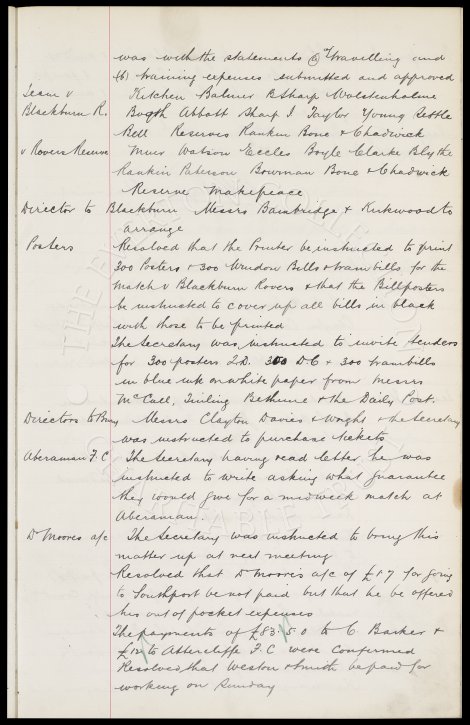 was with the statements (5) Travelling and
(6) training expenses submitted and approved
Team v Kitchen Balmer B Sharp Wolstenholme
Blackburn R. Booth Abbott Sharp J. Taylor Young Settle
Bell Reserves Rankin Bone & Chadwick
v Rovers Reserve Muir Watson Eccles Boyle Clarke Blythe
Rankin Paterson Bowman Bone & Chadwick
Reserve Makepeace
Director to Blackburn Messrs Bainbridge & Kirkwood to
arrange
Posters Resolved that the Printer be instructed to print
300 Posters & 300 Window Bills & trambills for the
match v Blackburn Rovers & that the Billposters
be instructed to cover up all bills in black
with those to be printed
The Secretary was instructed to invite tenders
for 300 posters 2.D. 300 D C & 300 trambills
in blue ink on white paper from Messrs
McCall, Tinling Bethune & the Daily Post.
Directors to Bury Messrs Clayton Davies & Wright & the Secretary
was instructed to purchase tickets
Aberaman F.C The Secretary having read letter he was
instructed to write asking what guarantee
they would give for a midweek match at
Aberaman.
Dr Moores a/c The Secretary was instructed to bring this
matter up at next meeting
Resolved that Dr Moores a/c of for going
to Southport be not paid but that he be offered
his out of pocket expenses
The payments of £83. 5. 0 to C Barker &
to Attercliffe F.C were confirmed
Resolved that Weston & Smith be paid for
working on Sunday